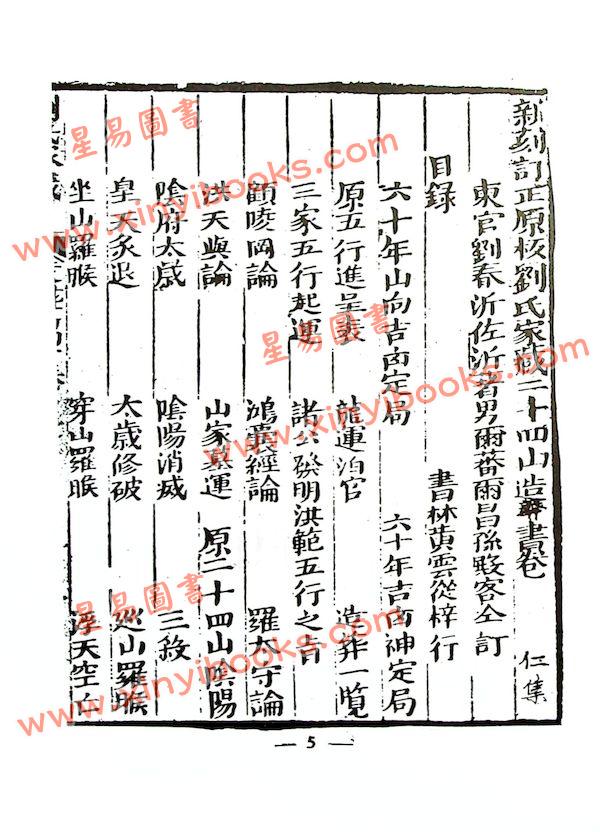 新刻訂正原板劉氏家藏二十四山造葬書卷 仁集
東官劉春沂佐沂著男爾蕃爾昌孫客仝訂
目錄 書林黄雲從梓行
六十年山向吉凶定局 六十年吉凶神定局
原五行進呈表 龍運泊宫 造葬一覧
三家五行起運 諸公發明洪範五行之吉
顧陵岡論 經論 羅太守論
洪天與論 山家墓運 原二十四山陰陽
陰府太歲 陰陽消滅 三殺
皇天炙退 太歲修破 巡山羅睺
坐山羅睺 穿山羅睺 浮天空亡
星易圖書
www.xinyibooks.com
星易圖書
www.xinyibooks.com
星易圖書
www.xinyibooks.com
— 5 —